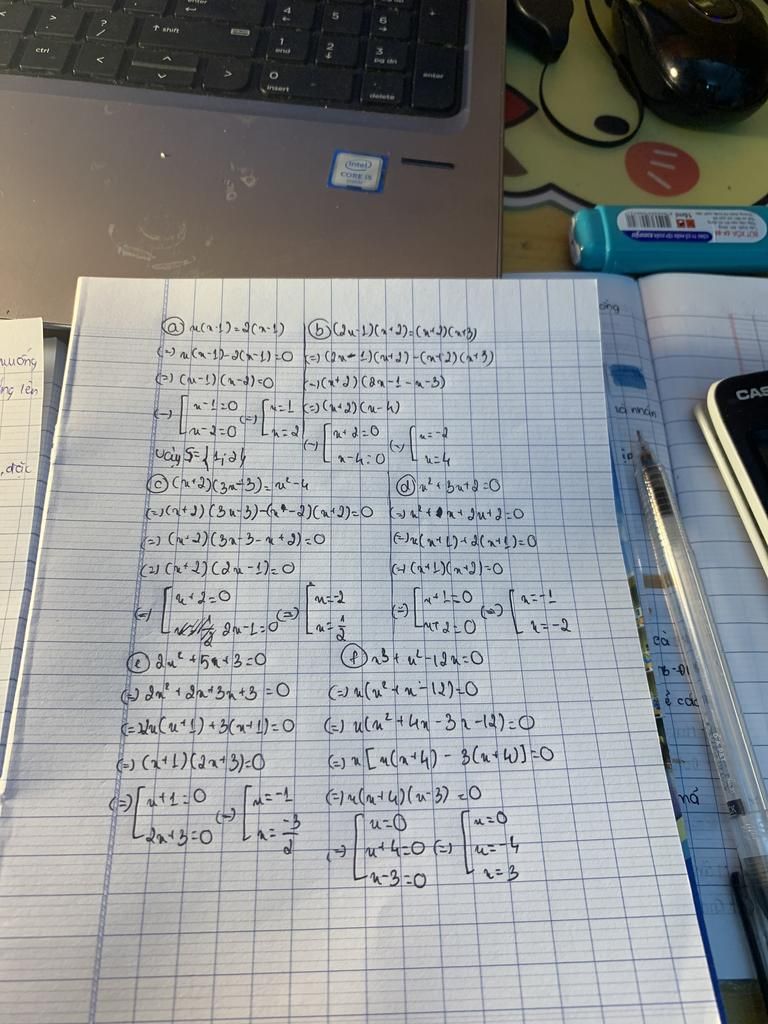 enter
shift
ctrl
4
5
6
1
end
2
3
pg dn
enter
0
insert
delete
intel
CORE i5
CAS
ⓐ x(x-1)=2(x-1)
(=) x(x-1)-2(x-1)=0
(=) (x-1)(x-2)=0
(=) [x-1=0 (=) [x=1
x-2=0 x=2
Vậy S={1;2}
ⓑ (2x-1)(x+2)=(x+2)(x+3)
(=) (2x-1)(x+2)-(x+2)(x+3)
(=) (x+2)(2x-1-x-3)
(=) (x+2)(x-4)
(=) [x+2=0 (=) [x=-2
x-4=0 x=4
ⓒ (x+2)(3x-3)=x²-4
(=) (x+2)(3x-3)-(x-2)(x+2)=0
(=) (x+2)(3x-3-x+2)=0
(=) (x+2)(2x-1)=0
(=) [x+2=0 (=) [x=-2
2x-1=0 x=1/2
ⓓ x²+3x+2=0
(=) x²+x+2x+2=0
(=) x(x+1)+2(x+1)=0
(=) (x+1)(x+2)=0
(=) [x+1=0 (=) [x=-1
x+2=0 x=-2
ⓔ 2x²+5x+3=0
(=) 2x²+2x+3x+3=0
(=) 2x(x+1)+3(x+1)=0
(=) (x+1)(2x+3)=0
(=) [x+1=0 (=) [x=-1
2x+3=0 x=-3/2
ⓕ x³+x²-12x=0
(=) x(x²+x-12)=0
(=) x(x²+4x-3x-12)=0
(=) x[x(x+4)-3(x+4)]=0
(=) x(x+4)(x-3)=0
(=) [x=0 (=) [x=0
x+4=0 x=-4
x-3=0 x=3